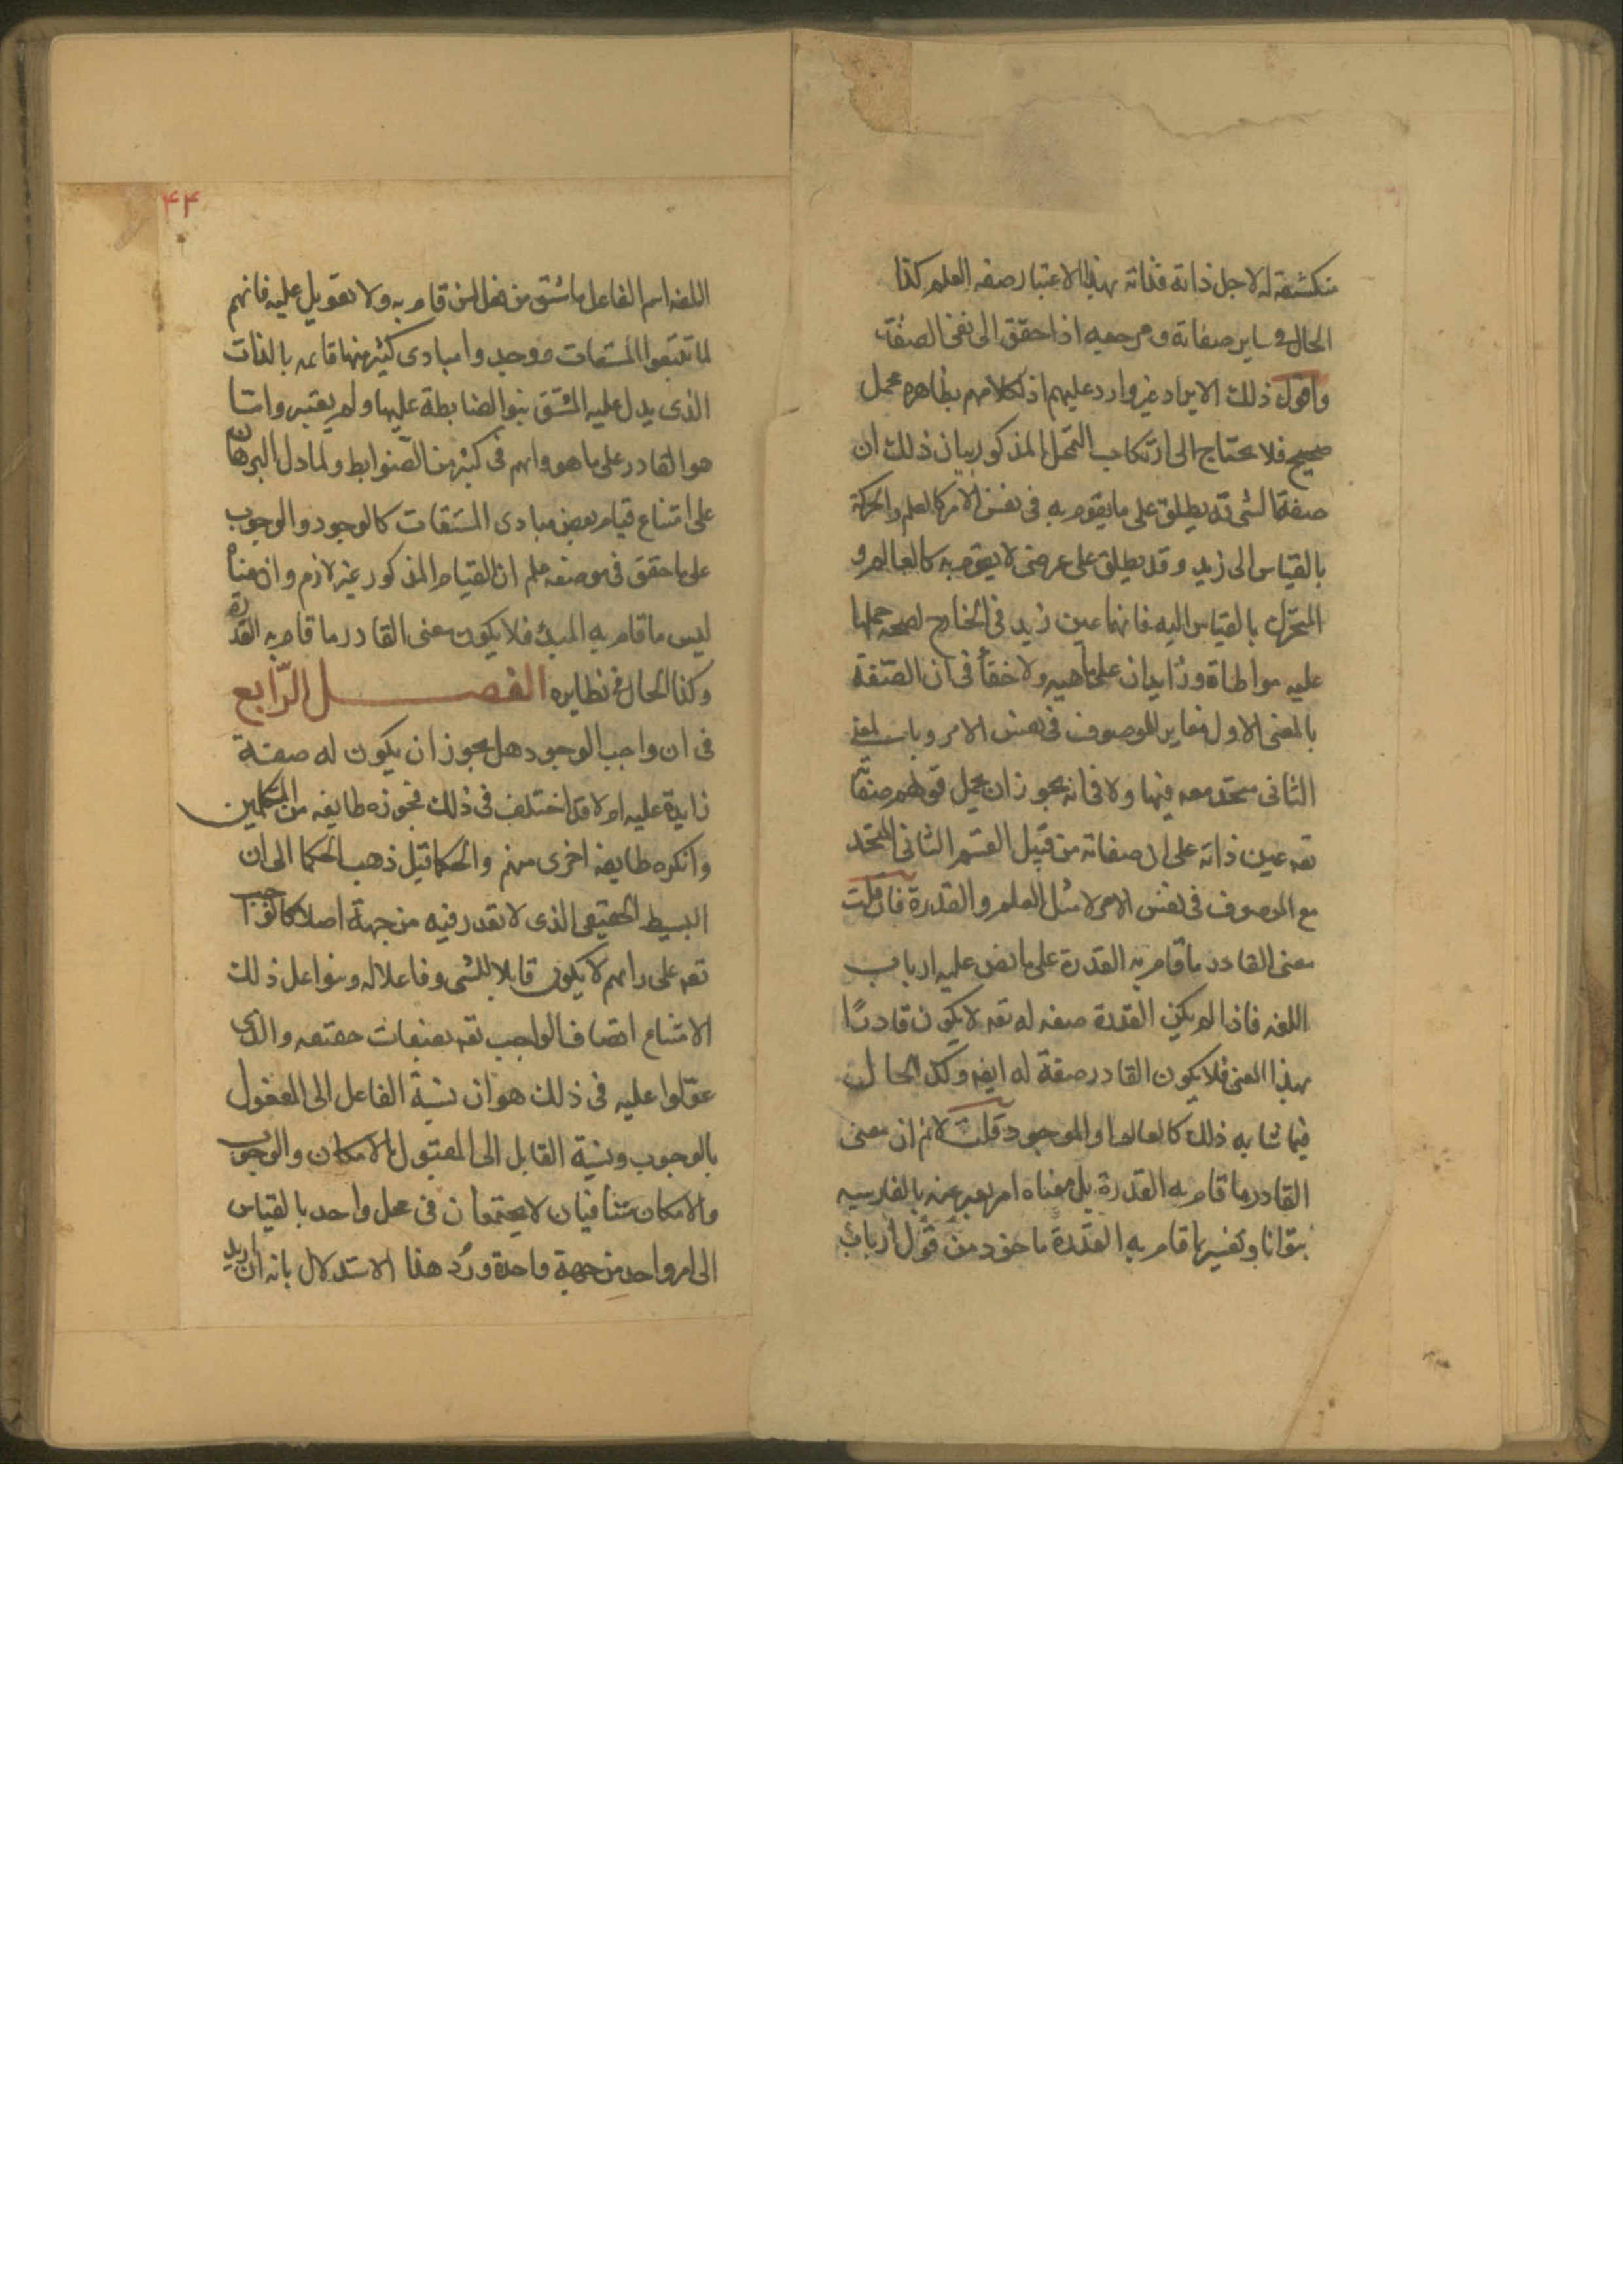 منكشفة له لاجل ذاته فذاته بهذا الاعتبار صفه العلم كذا
الحال فى ساير صفاته ومرجعه اذا حقق الى نفى الصفات
واقول ذلك الايراد غير وارد عليهم اذ لكلامهم بظاهره محمل
صحيح فلا يحتاج الى ارتكاب التمحل المذكور بيان ذلك ان
صفة الشى قد يطلق على ما يقوم به فى نفس الامر كالعلم والحركة
بالقياس الى زيد وقد يطلق على عرضى لا يقوم به كالعالم و
المتحرك بالقياس اليه فانهما عين زيد فى الخارج لصحه حملها
عليه مواطاة وزايدان على ماهيه ولا خفأ فى ان الصّفة
بالمعنى الاول مغاير للموصوف فى نفس الامر وبالمعنى
الثانى متحد معه فيها ولا فانه يجوز ان يحمل قولهم صفاته
تعه عين ذاته على ان صفاته من قبيل القسم الثانى المتحد
مع الموصوف فى نفس الامر لا مثل العلم والقدرة فان قلت
معنى القادر ما قام به القدرة على ما نص عليه ارباب
اللغه فاذا لم يكن القدرة صفه له تعه لا يكون قادرًا
بهذا المعنى فلا يكون القادر صفة له ايضه وكذ الحال
فيما شابه ذلك كالعالم والموجود قلت لا نم ان معنى
القادر ما قام به القدرة بل معناه امر يعبر عنه بالفارسيه
بتوانا وتفسير بما قام به القدرة ماخوذ من قول ارباب
۴۴
اللغه اسم الفاعل ما شتق من فعل لمن قام به ولا تعويل عليه فانهم
لما تتبعوا المشتقات فوجدوا مبادى كثير منها قايمه بالذات
الذى يدل عليه المشتق بنوا الضابطة عليها ولم يعتبروا ما
هو القادر على ما هو دابهم فى كثير من الضوابط ولما دل البرهان
على امتناع قيام بعض مبادى المشتقات كالوجود والوجوب
على ما حقق فى موضعه علم ان القيام المذكور غير لازم وان معناه
ليس ما قام به المبدء فلا يكون معنى القادر ما قام به القدرة
وكذا الحال فى نظايره الفصل الرّابع
فى ان واجب الوجود هل يجوز ان يكون له صفة
زايدة عليه ام لا قد اختلف فى ذلك فجوزه طايفه من المتكلمين
وانكره طايفه اخرى منهم والحكما قيل ذهب الحكما الى ان
البسيط الحقيقى الذى لا تعدد فيه من جهة اصلا كالواجب
تعه على رايهم لا يكون قابلا للشى وفاعلا له وبنوا على ذلك
الامتناع اتصاف الواجب تعه بصفات حقيقه والذى
عولوا عليه فى ذلك هو ان نسبة الفاعل الى المفعول
بالوجوب ونسبة القابل الى المقبول بالامكان والوجوب
والامكان متنافيان لا يجتمعان فى محل واحد بالقياس
الى امر واحد من جهة واحدة ورُد هذا الاستدلال بانه ان اريد